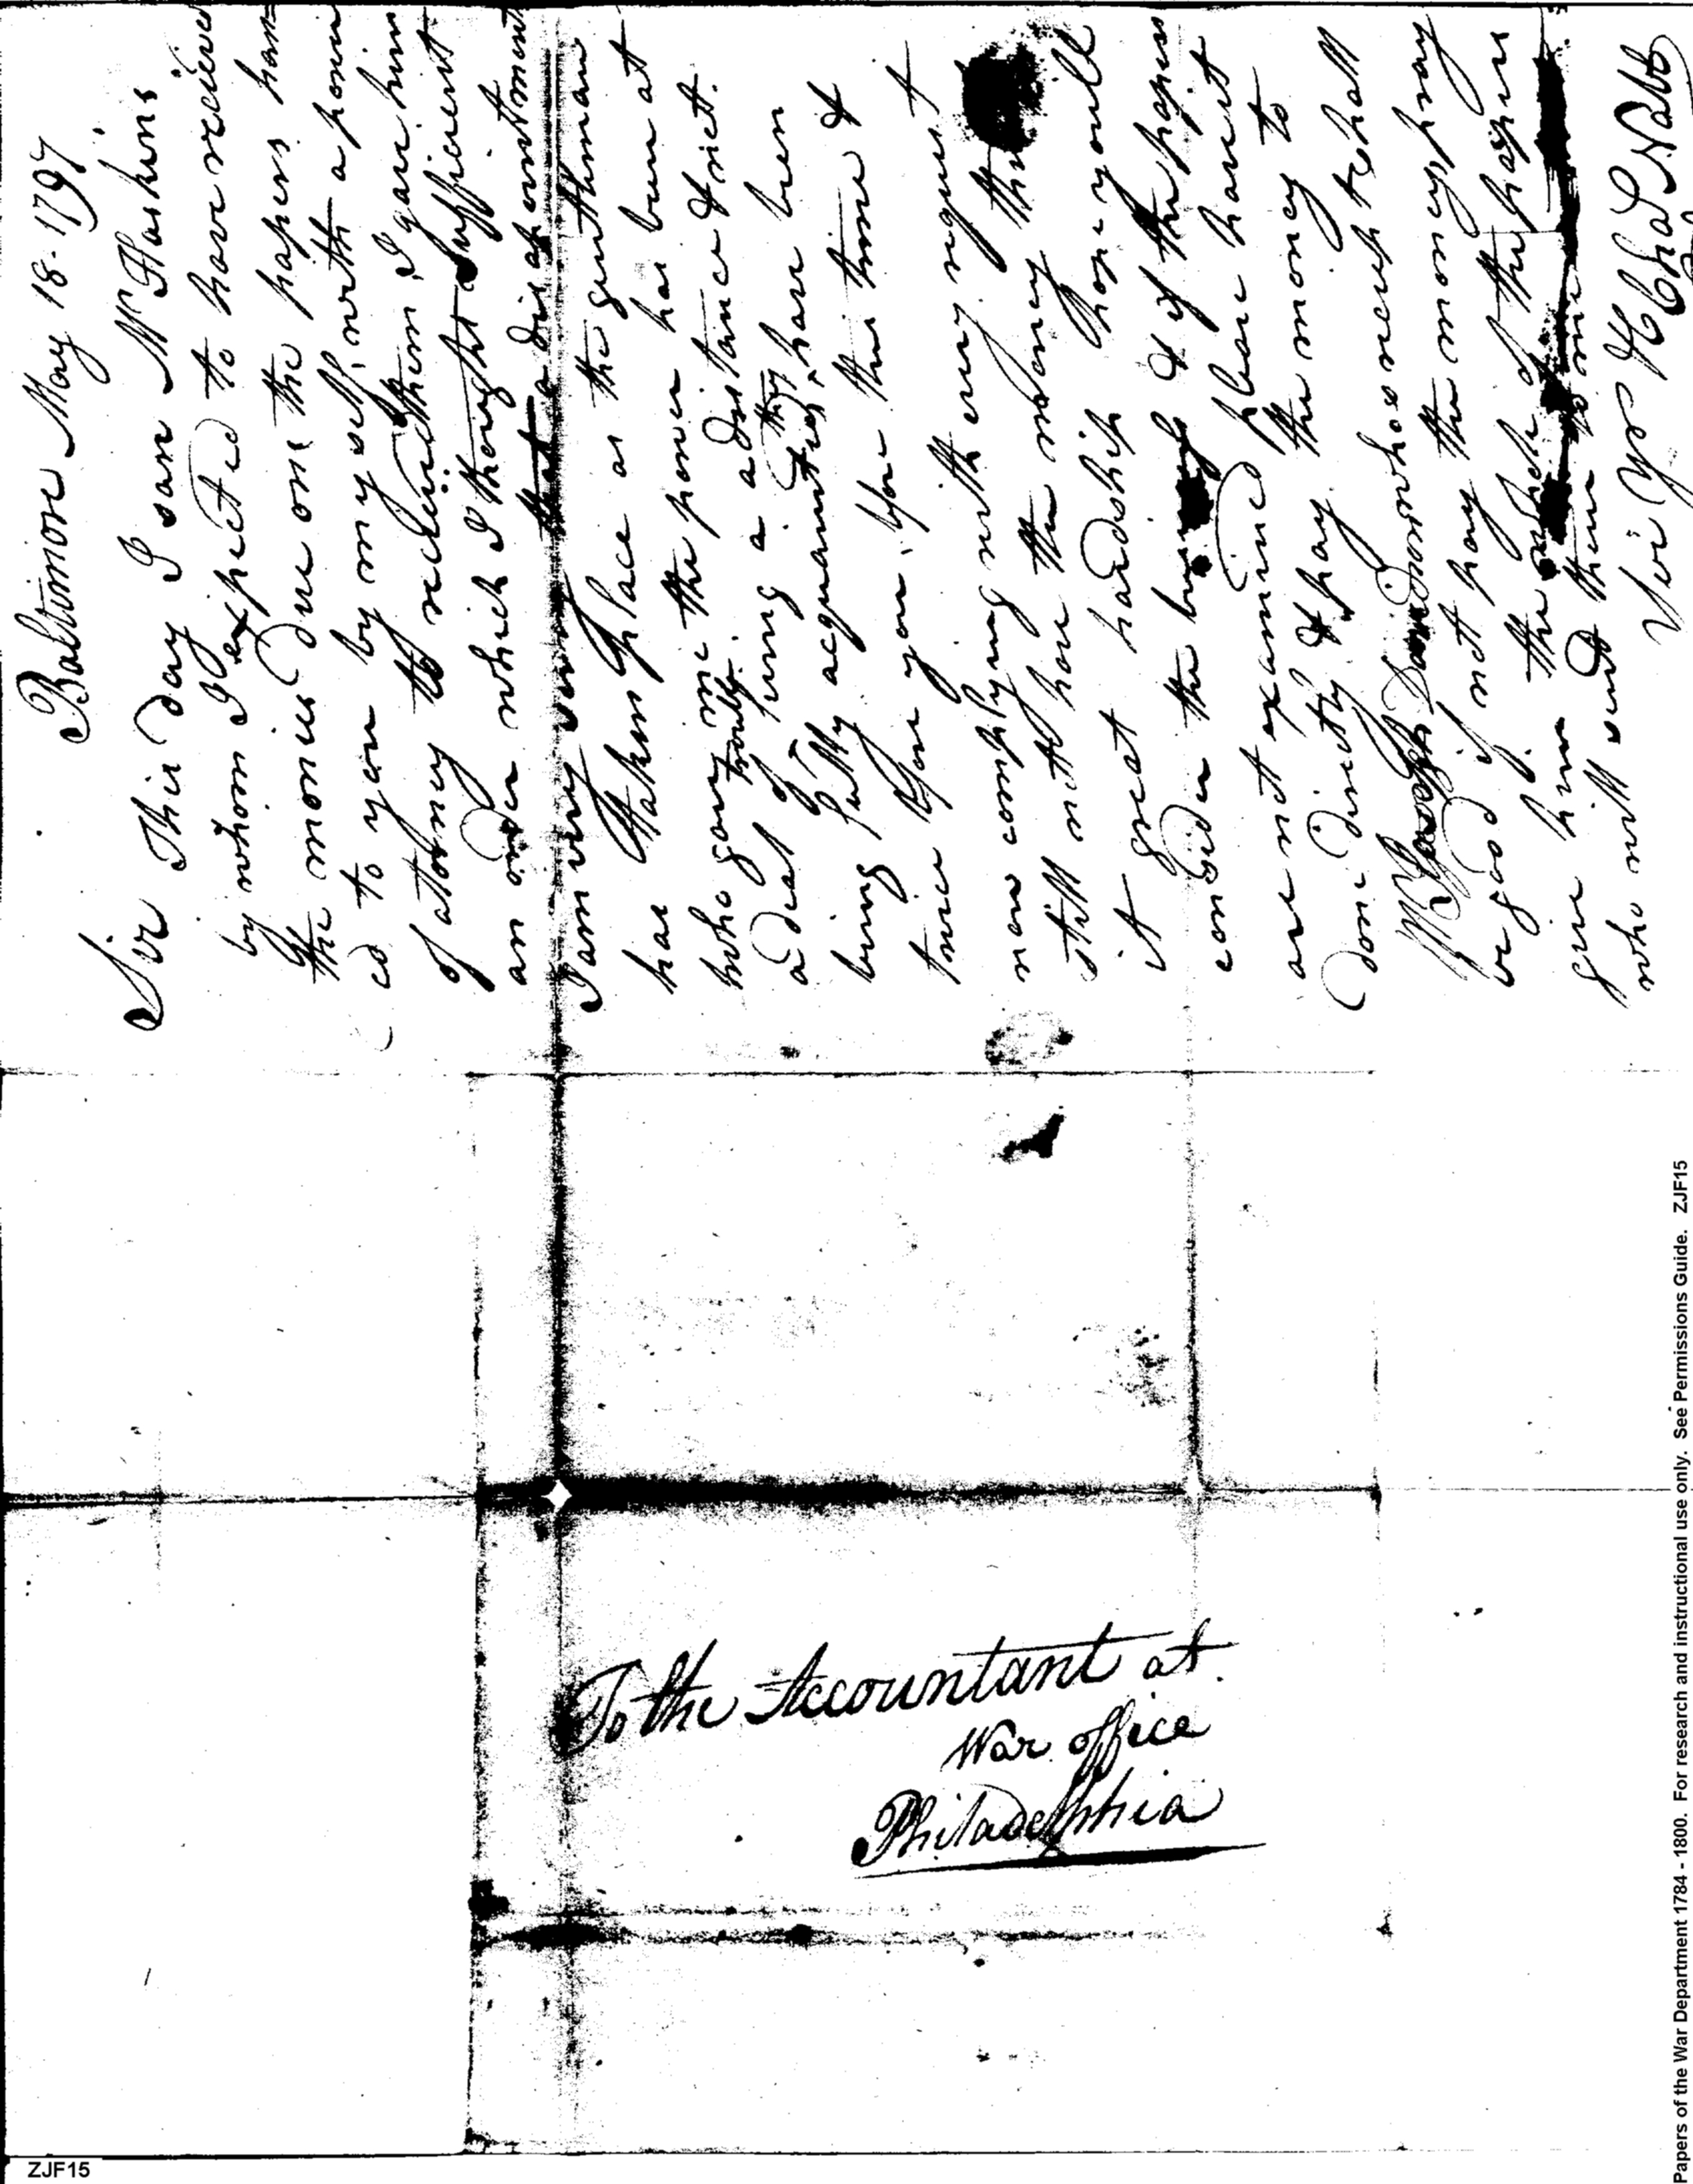 Baltimore May 18. 1797
Sir This day I saw Mr Haskins
by whom I expected to have received
the monies due on the papers hand
ed to you by myself, with a power
of atorney to receive them I gave him
an order which I thought Sufficient
I am very sorry that a disapointment
has taken place as the gentleman
who gave me the power has been at
a deal of trouble being a distance & not
being fully acquainted, they have been
twice before you, before this time &
now complying with every request
still not have the money this
it great hardship hope you will
consider the & if the papers
are not examined please have it
done directly & pay the money to
Mr whos receipt shall
be good if not pay the money pray
give him the whole of the papers
who will send them to me
Sir Yr H Chas Nabb
To the Accountant at
War office
Philadelphia
Papers of the War Department 1784 - 1800. For research and instructional use only. See Permissions Guide. ZJF15
ZJF15